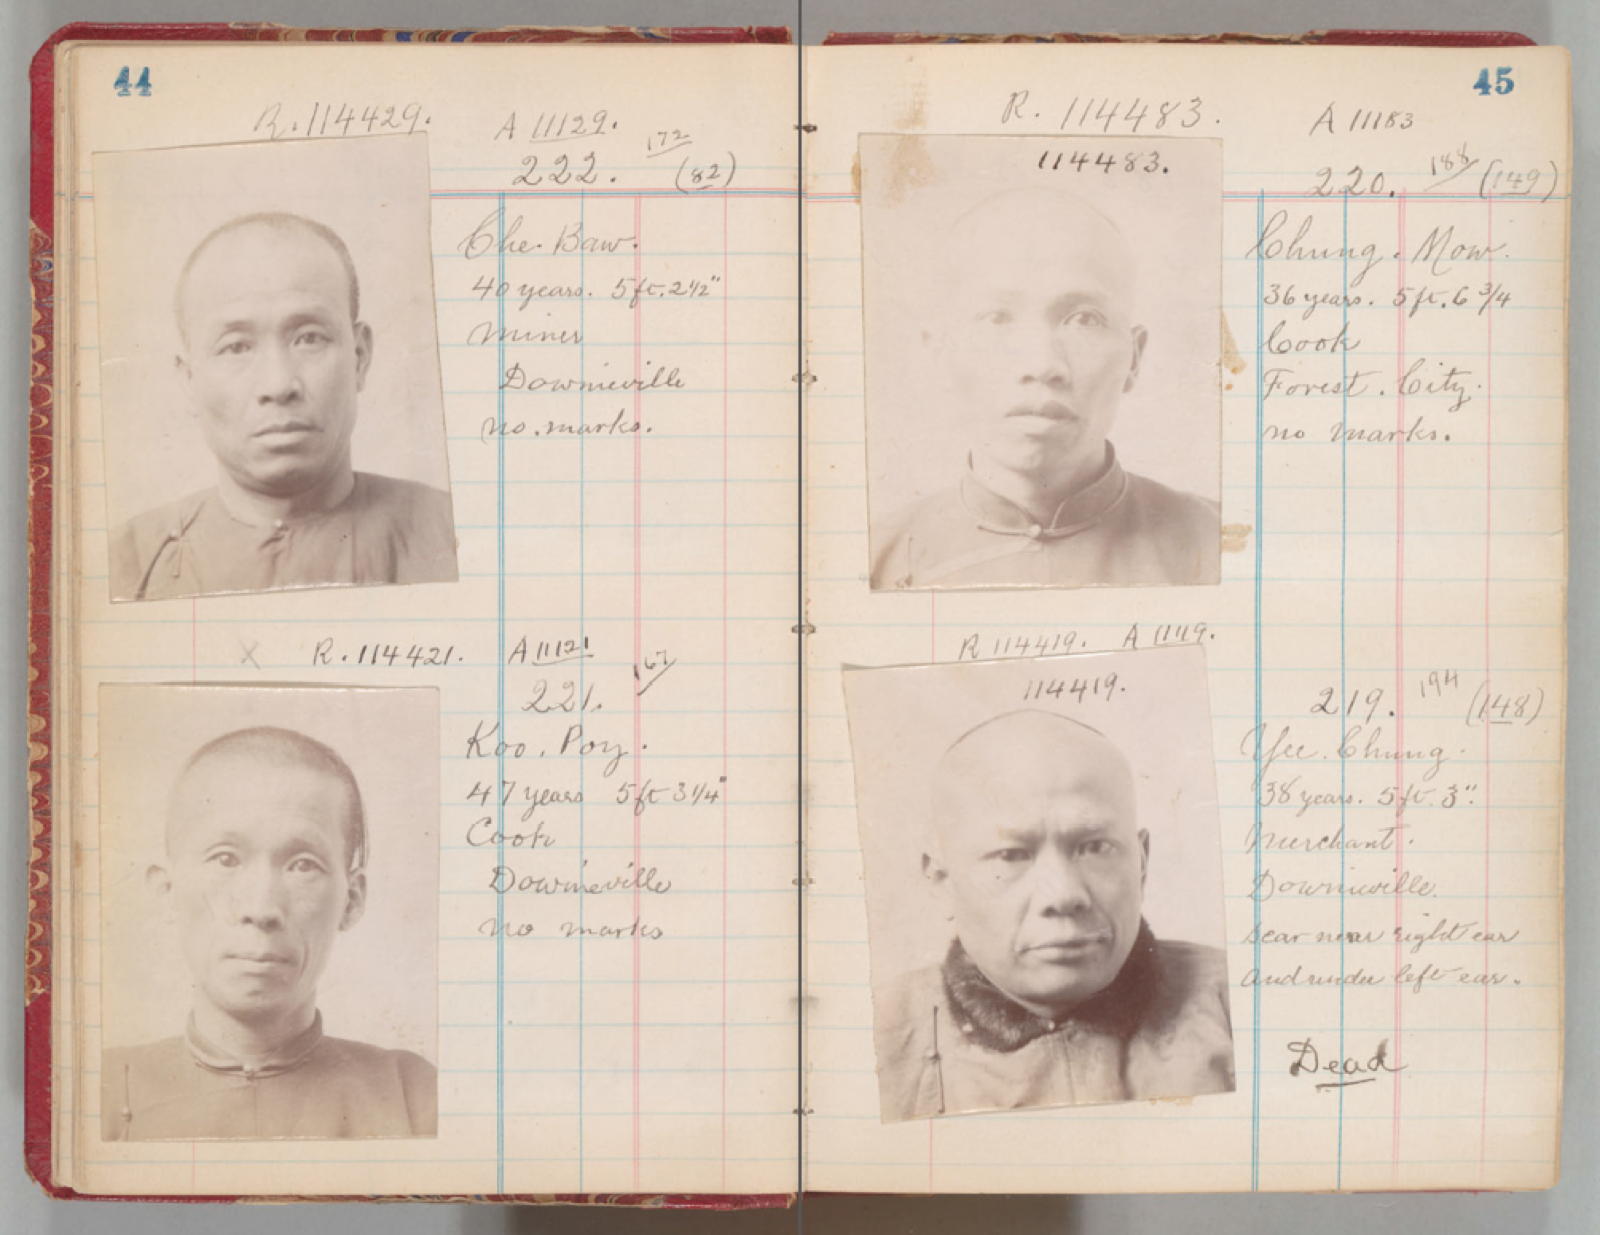 44
R. 114429.
A 11129.
172
222. (82)
Che. Baw.
40 years. 5 ft. 2 1/2"
Miner
Downieville
no. marks.
X R. 114421. A 11121
167
221.
Koo. Poy.
47 years 5 ft 3 1/4"
Cook
Downieville
no marks
45
R. 114483. A 11183
114483.
188
220. (149)
Chung. Mow.
36 years. 5 ft. 6 3/4
Cook
Forest. City.
no marks.
R 114419. A 11119.
114419.
194
219. (148)
Yee. Chung.
38 years. 5 ft. 3".
Merchant.
Downieville.
Scar near right ear
and under left ear.
Dead